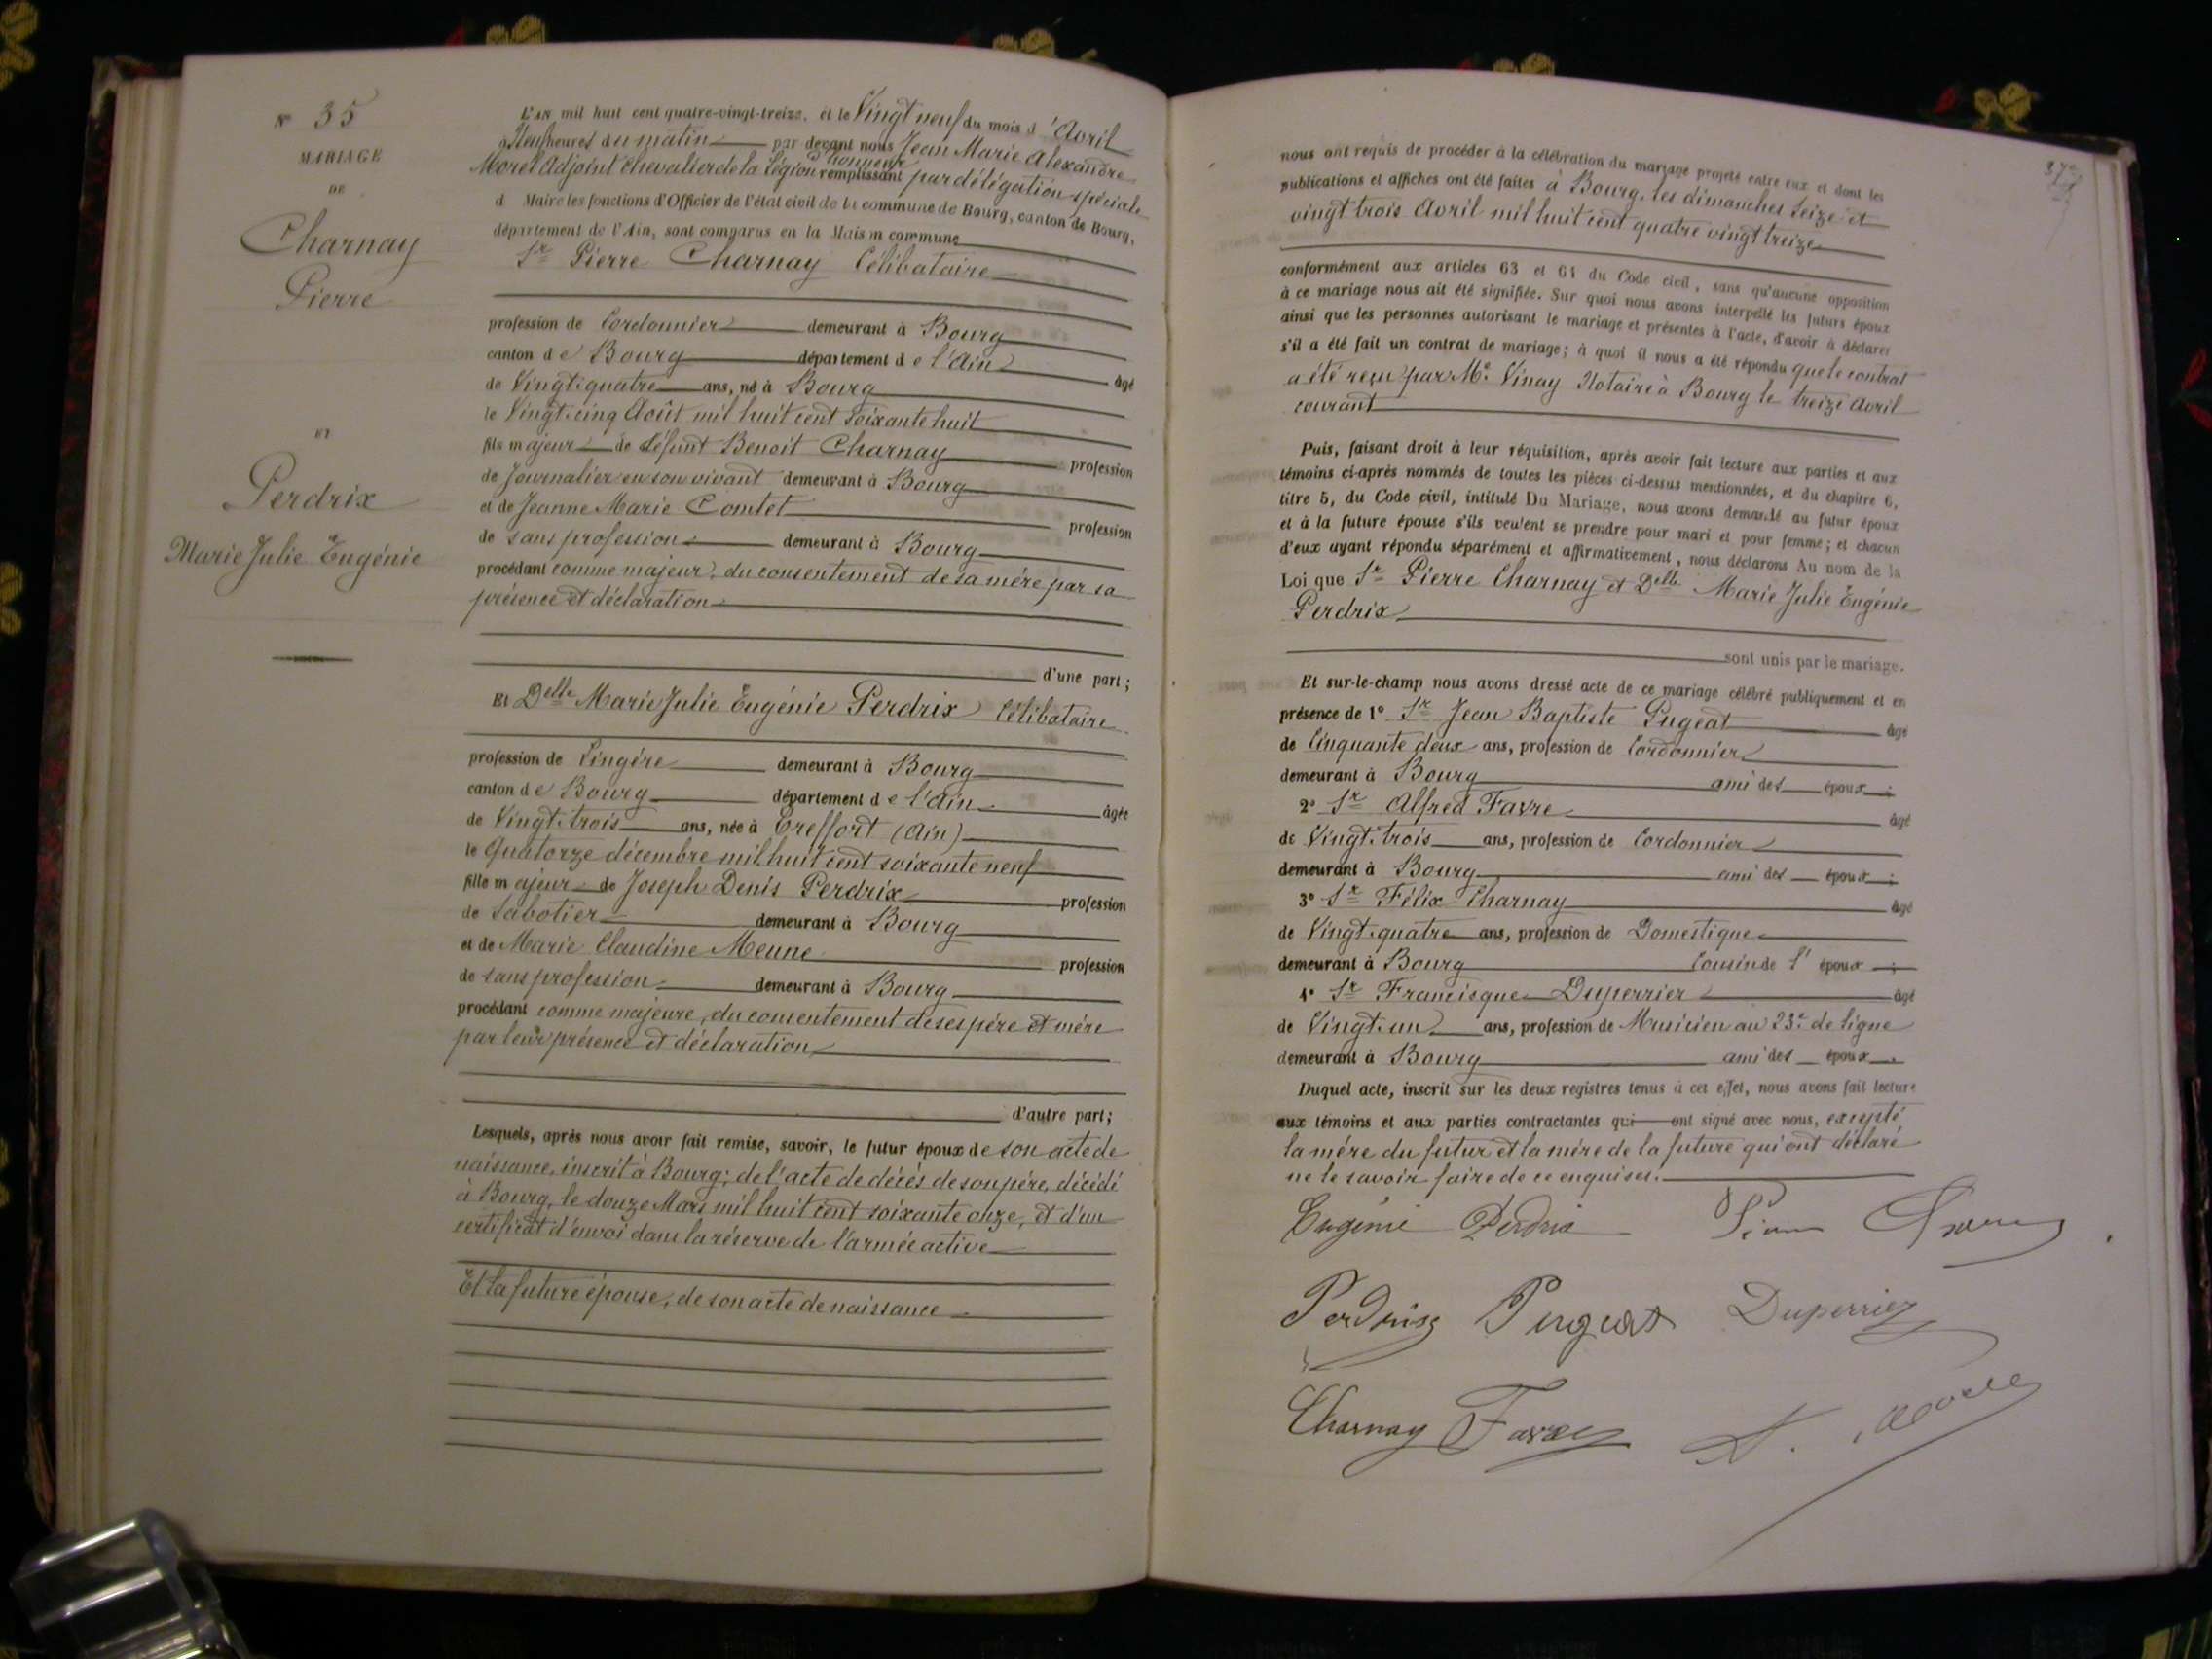 N° 35
MARIAGE
DE
Charnay
Pierre
ET
Perdrix
Marie Julie Eugénie
L'AN mil huit cent quatre-vingt-treize, et le Vingt neuf du mois d'Avril
à Neuf heures du matin par devant nous Jean Marie Alexandre
Morel Adjoint Chevalier de la Légion d'honneur remplissant par délégation spéciale
d Maire les fonctions d'Officier de l'état civil de la commune de Bourg, canton de Bourg,
département de l'Ain, sont comparus en la Maison commune
Sr Pierre Charnay Célibataire
profession de Cordonnier demeurant à Bourg
canton de Bourg département de l'Ain âgé
de Vingt-quatre ans, né à Bourg
le Vingt-cinq Août mil huit cent soixante huit
fils majeur de défunt Benoit Charnay profession
de Journalier en son vivant demeurant à Bourg
et de Jeanne Marie Comtet profession
de sans profession demeurant à Bourg
procédant comme majeur, du consentement de sa mère par sa
présence et déclaration
d'une part;
Et Delle Marie Julie Eugénie Perdrix Célibataire
profession de Lingère demeurant à Bourg
canton de Bourg département de l'Ain âgée
de Vingt-trois ans, née à Treffort (Ain)
le Quatorze décembre mil huit cent soixante neuf
fille majeur de Joseph Denis Perdrix profession
de Sabotier demeurant à Bourg
et de Marie Claudine Meune profession
de sans profession demeurant à Bourg
procédant comme majeure, du consentement de ses père et mère
par leur présence et déclaration
d'autre part;
Lesquels, après nous avoir fait remise, savoir, le futur époux de son acte de
naissance, inscrit à Bourg; de l'acte de décès de son père, décédé
à Bourg, le douze Mars mil huit cent soixante onze, et d'un
certificat d'envoi dans la réserve de l'armée active
Et la future épouse, de son acte de naissance
nous ont requis de procéder à la célébration du mariage projeté entre eux et dont les
publications et affiches ont été faites à Bourg, les dimanches seize et
vingt trois Avril mil huit cent quatre vingt treize
conformément aux articles 63 et 64 du Code civil, sans qu'aucune opposition
à ce mariage nous ait été signifiée. Sur quoi nous avons interpellé les futurs époux
ainsi que les personnes autorisant le mariage et présentes à l'acte, d'avoir à déclarer
s'il a été fait un contrat de mariage; à quoi il nous a été répondu que le contrat
a été reçu par Me Vinay Notaire à Bourg le treize Avril
courant
Puis, faisant droit à leur réquisition, après avoir fait lecture aux parties et aux
témoins ci-après nommés de toutes les pièces ci-dessus mentionnées, et du chapitre 6,
titre 5, du Code civil, intitulé Du Mariage, nous avons demandé au futur époux
et à la future épouse s'ils veulent se prendre pour mari et pour femme; et chacun
d'eux ayant répondu séparément et affirmativement, nous déclarons Au nom de la
Loi que Sr Pierre Charnay et Delle Marie Julie Eugénie
Perdrix
sont unis par le mariage.
Et sur-le-champ nous avons dressé acte de ce mariage célébré publiquement et en
présence de 1° Sr Jean Baptiste Pugeat âgé
de Cinquante deux ans, profession de Cordonnier
demeurant à Bourg ami des époux;
2° Sr Alfred Favre âgé
de Vingt-trois ans, profession de Cordonnier
demeurant à Bourg ami des époux;
3° Sr Félix Charnay âgé
de Vingt-quatre ans, profession de Domestique
demeurant à Bourg Cousin de l'époux;
4° Sr Francisque Duperrier âgé
de Vingt-un ans, profession de Musicien au 23e de ligne
demeurant à Bourg ami des époux.
Duquel acte, inscrit sur les deux registres tenus à cet effet, nous avons fait lecture
aux témoins et aux parties contractantes qui ont signé avec nous, excepté
la mère du futur et la mère de la future qui ont déclaré
ne le savoir faire de ce enquises.
Eugénie Perdrix Pierre Charnay
Perdrix Pugeat Duperrier
Charnay Favre A. Morel